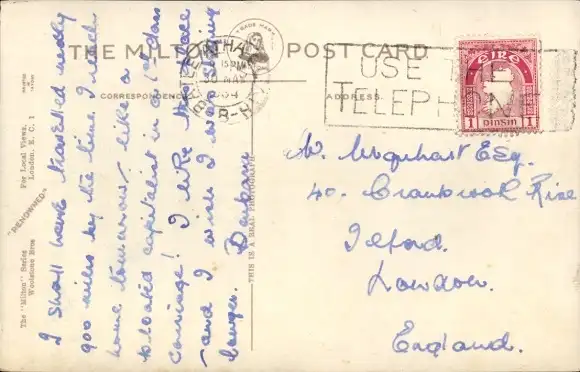 THE MILTON POST CARD
TRADE MARK
CORRESPONDENCE
ADDRESS.
USE THE
TELEPHONE
ÉIRE
1 PINGIN 1
I shall have travelled nearly
900 miles by the time I reach
home tomorrow, like a
bloated capitalist in a 1st class
carriage! I like this place
and I wish I was staying
longer.
W. Urquhart Esq.
40. Cranbrook Rise
Ilford.
London.
England.
THIS IS A REAL PHOTOGRAPH
"RENOWNED"
For Local Views,
London, E. C. 1
The "Milton" Series
Woolstone Bros